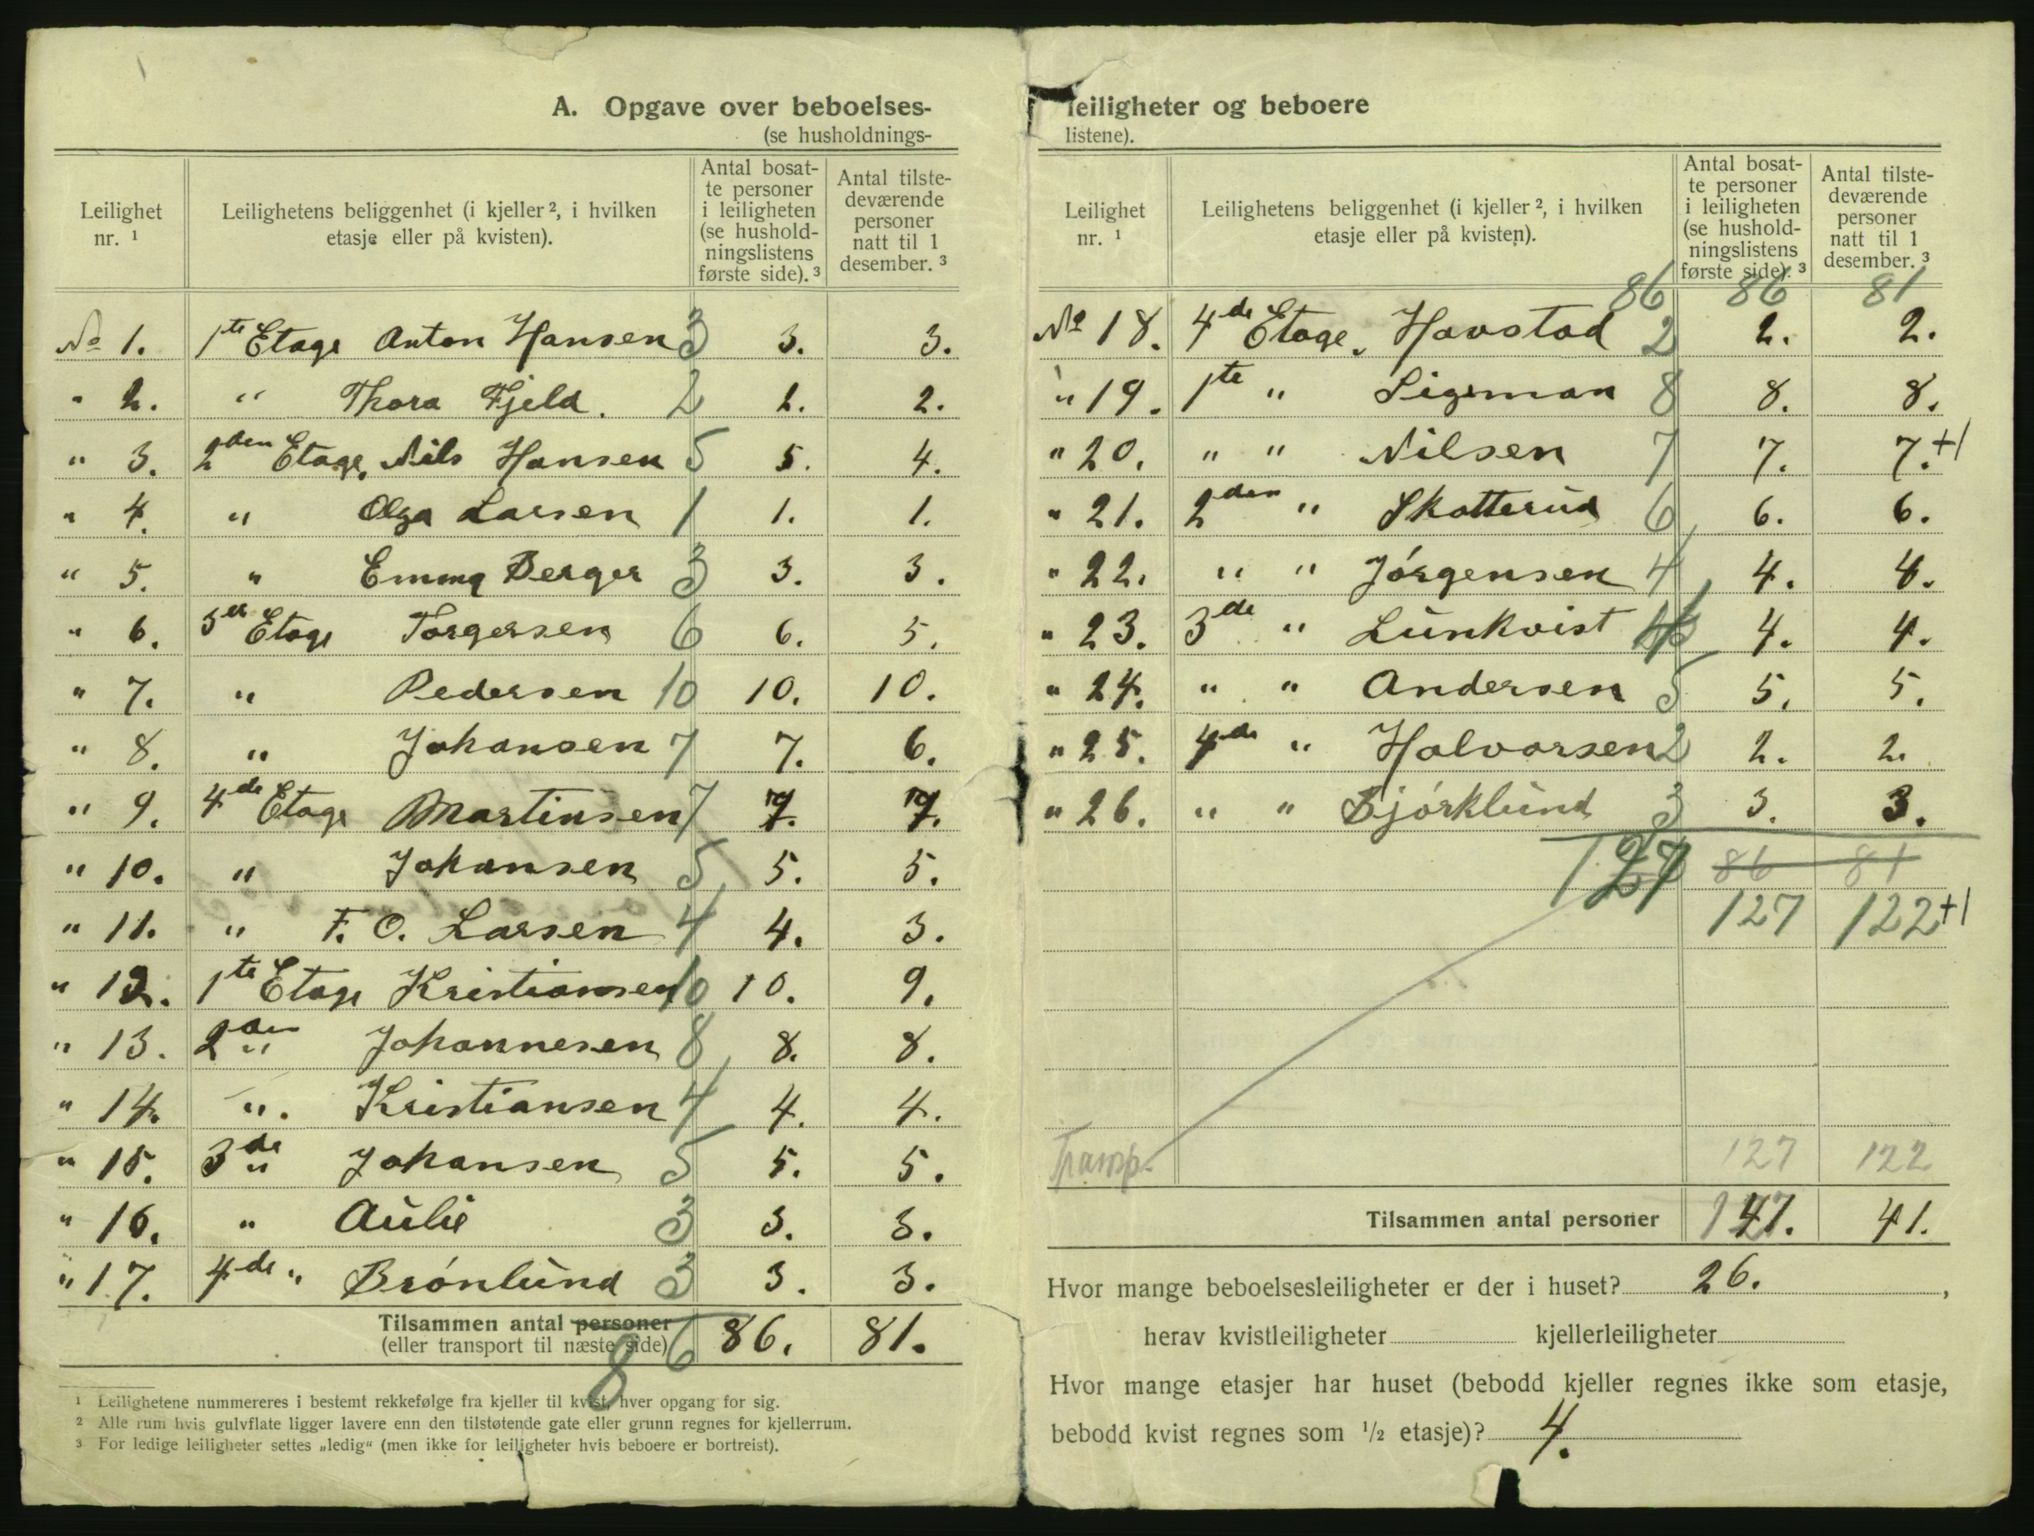 A. Opgave over beboelses-
(se husholdnings-
Leilighet nr. ¹
Leilighetens beliggenhet (i kjeller ², i hvilken etasje eller på kvisten).
Antal bosatte personer i leiligheten (se husholdningslistens første side). ³
Antal tilstedeværende personer natt til 1 desember. ³
No 1. 1te Etage Anton Hansen 3 3. 3.
" 2. " Thora Fjeld. 2 2. 2.
" 3. 2den Etage, Nils Hansen 5 5. 4.
" 4. " Olga Larsen 1 1. 1.
" 5. " Emma Berger 3 3. 3.
" 6. 3de Etage Torgersen 6 6. 5.
" 7. " Pedersen 10 10. 10.
" 8. " Johansen 7 7. 6.
" 9. 4de Etage Martinsen 7 7. 7.
" 10. " Johansen 5 5. 5.
" 11. " F. O. Larsen 4 4. 3.
" 12. 1te Etage Kristiansen 10 10. 9.
" 13. 2den " Johannesen 8 8. 8.
" 14. ". Kristiansen 4 4. 4.
" 15. 3de " Johansen 5 5. 5.
" 16. " Aulie 3 3. 3.
" 17. 4de " Brónlund 3 3. 3.
Tilsammen antal personer
(eller transport til næste side) 86 86. 81.
¹ Leilighetene nummereres i bestemt rekkefølge fra kjeller til kvist, hver opgang for sig.
² Alle rum hvis gulvflate ligger lavere enn den tilstøtende gate eller grunn regnes for kjellerrum.
³ For ledige leiligheter settes „ledig“ (men ikke for leiligheter hvis beboere er bortreist).
leiligheter og beboere
listene).
Leilighet nr. ¹
Leilighetens beliggenhet (i kjeller ², i hvilken etasje eller på kvisten).
Antal bosatte personer i leiligheten (se husholdningslistens første side). ³
Antal tilstedeværende personer natt til 1 desember. ³
86 86 81
No 18. 4de Etage, Havstad 2 2. 2.
" 19. 1te " Sigsman 8 8. 8.
" 20. " " Nilsen 7 7. 7. +1
" 21. 2den " Skotterud 6 6. 6.
" 22. " " Jórgensen 4 4. 4.
" 23. 3de " Lunkvist 4 4. 4.
" 24. " " Andersen 5 5. 5.
" 25. 4de " Halvorsen 2 2. 2.
" 26. " " Bjórklund 3 3. 3.
127 86 81
127 122 +1
Transp. 127 122
Tilsammen antal personer 147. 41.
Hvor mange beboelsesleiligheter er der i huset? 26.,
herav kvistleiligheter kjellerleiligheter
Hvor mange etasjer har huset (bebodd kjeller regnes ikke som etasje,
bebodd kvist regnes som ½ etasje)? 4.